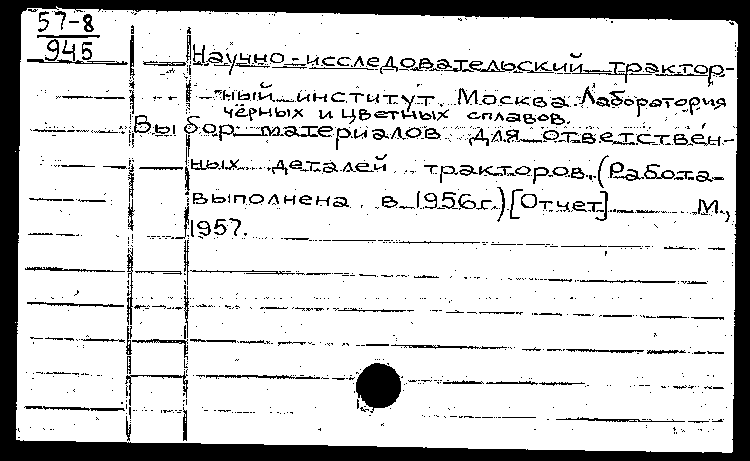 57-8
945
Научно-исследовательский трактор-
ный институт. Москва. Лаборатория
чёрных и цветных сплавов.
Выбор материалов для ответствен-
ных деталей тракторов. (Работа
выполнена в 1956г.) [Отчет] М.,
1957.